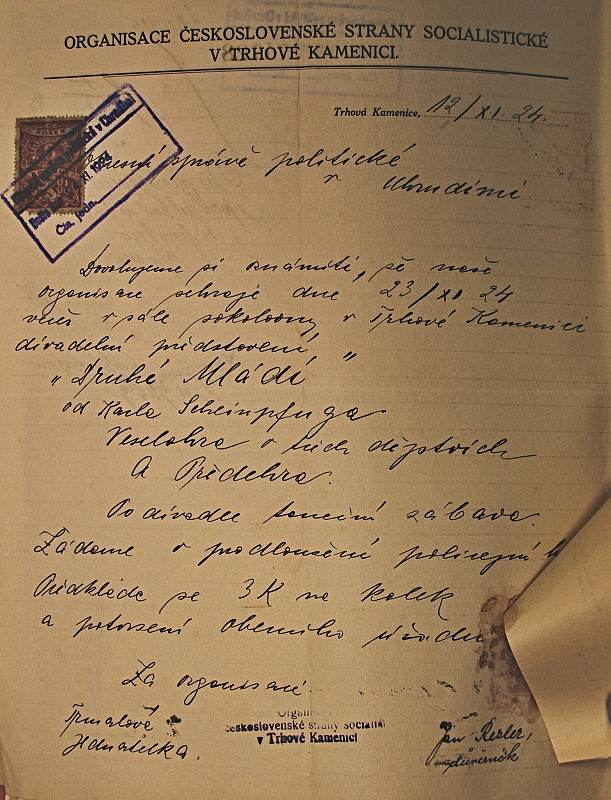 ORGANISACE ČESKOSLOVENSKÉ STRANY SOCIALISTICKÉ
V TRHOVÉ KAMENICI.
Trhová Kamenice, 12/XI. 24.
správě politické
v Chrudimi
Dovolujeme si oznámiti, že naše
organisace sehraje dne 23/XI 24
več v sále sokolovny v Trhové Kamenici
divadelní představení
„Druhé Mládí"
od Karla Scheinpfuga
Veselohra o třech dějstvích
A Předehra.
Po divadle taneční zábava.
Žádáme o prodloužení policejní h
Předkládá se 3 K na kolek
a potvrzení obecního úřadu
Za organisaci
československé strany sociali
v Trhové Kamenici
Jednatelka.
Jan Rezler,
důvěrník